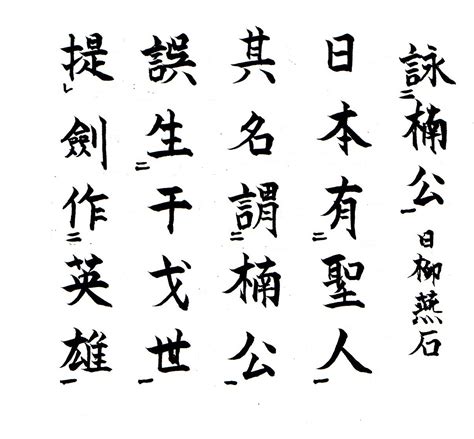 詠二楠公一 日柳燕石
日本有二聖人一
其名謂二楠公一
誤生二干戈世一
提レ劍作二英雄一